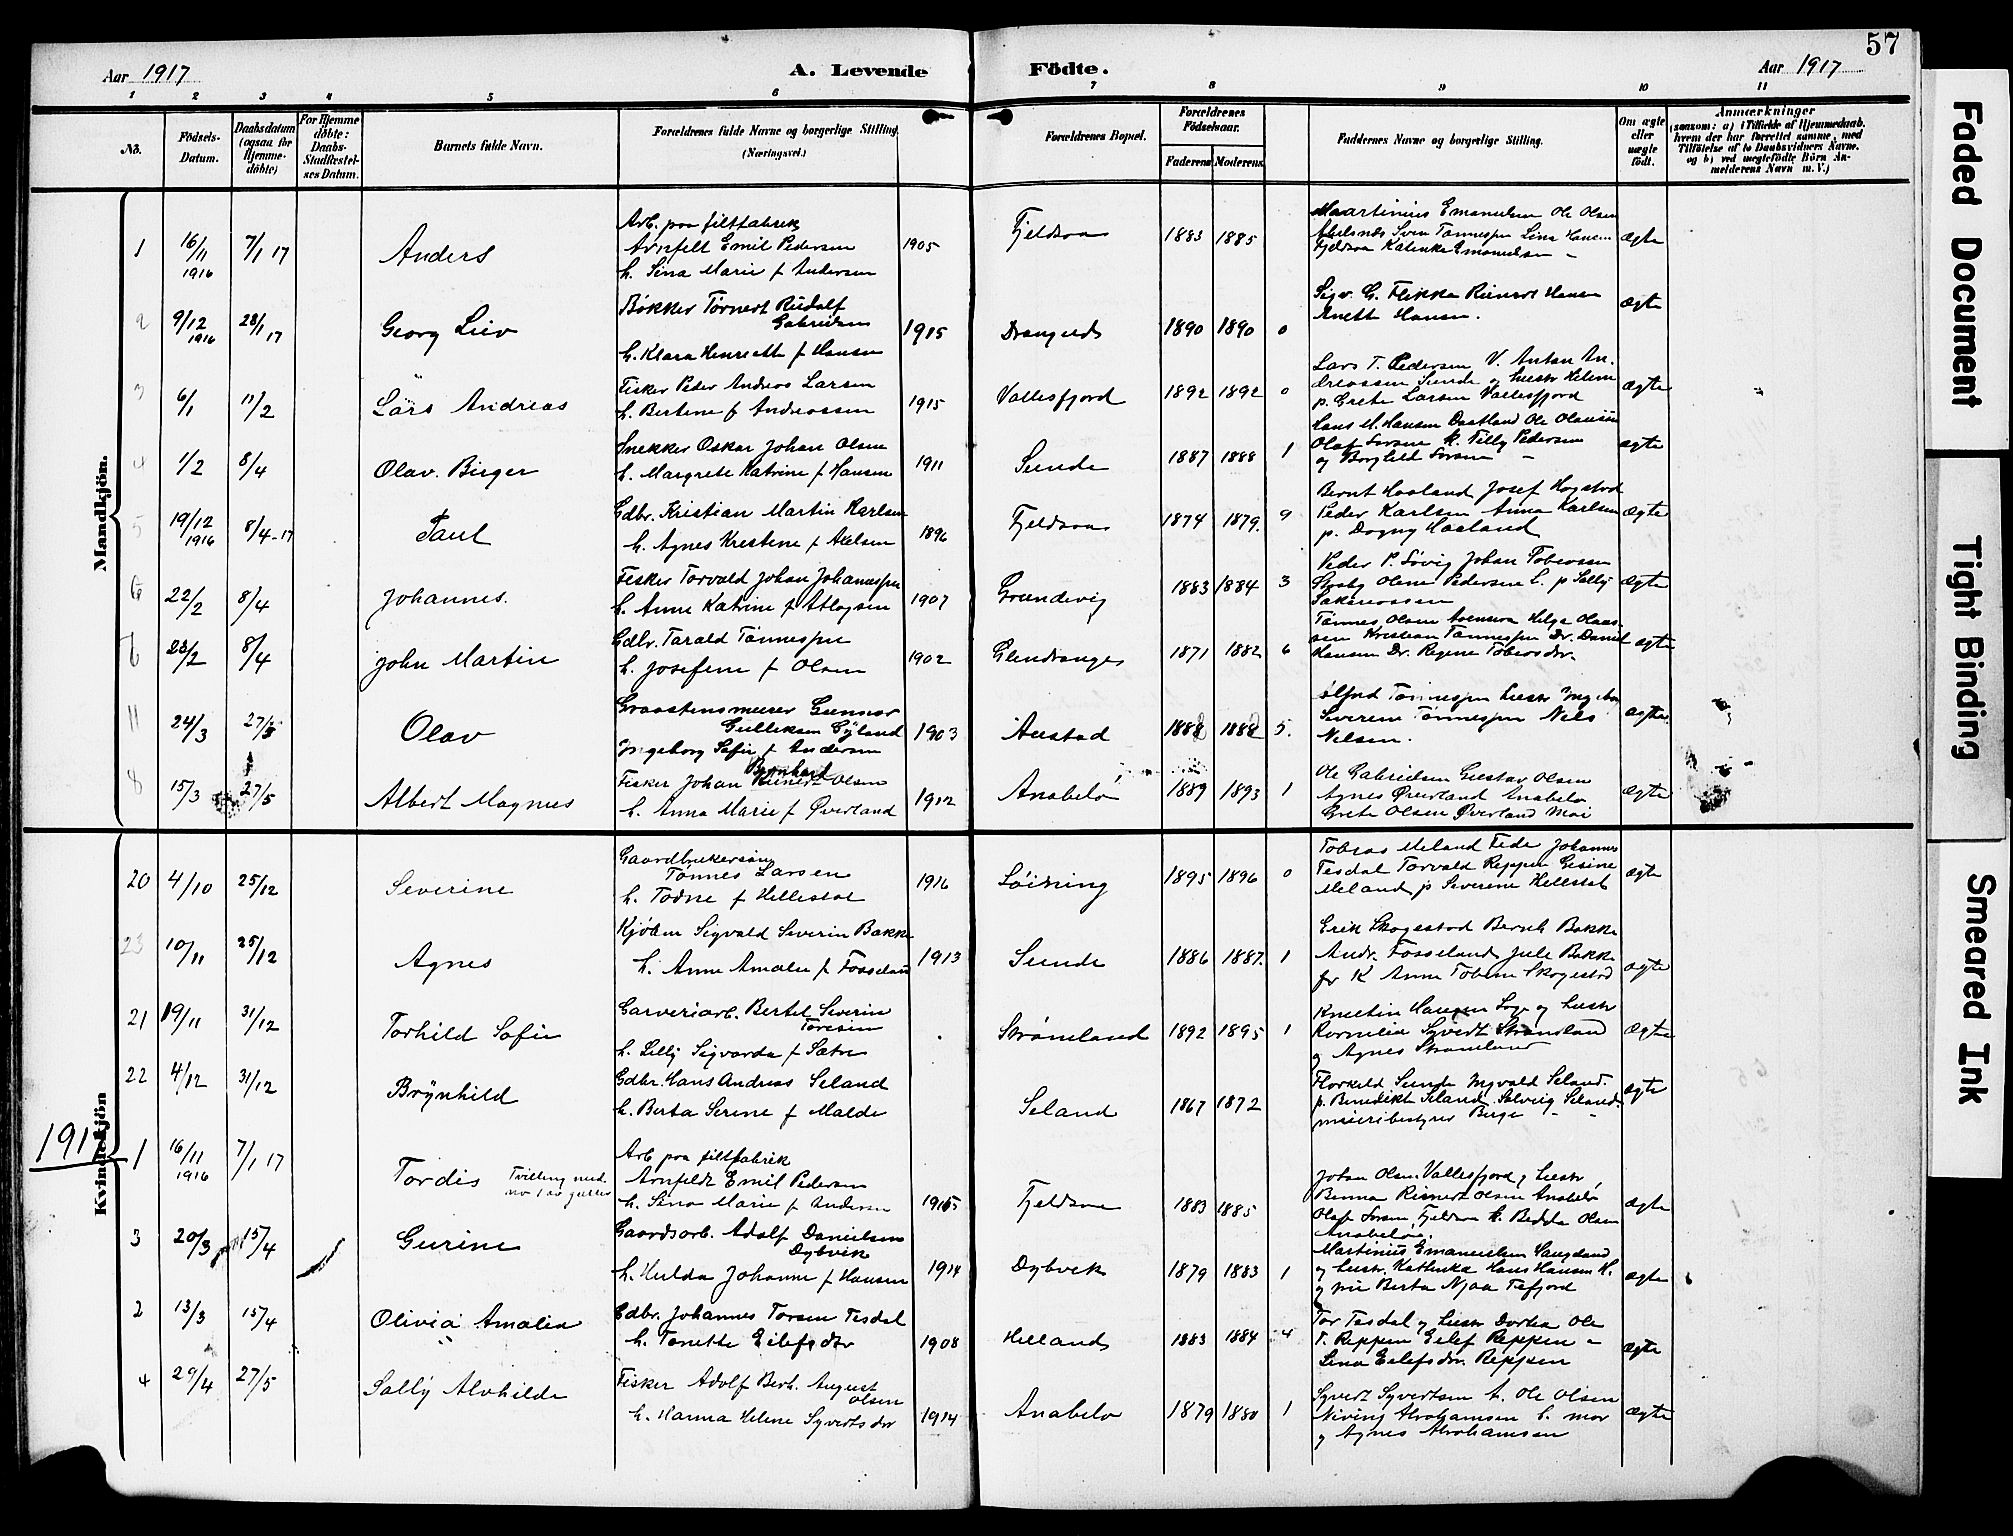 57
Aar 1917
A. Levende
Födte.
Aar 1917
1 2 3 4 5 6 7 8 9 10 11
No.
Födsels-
Datum.
Daabsdatum
(ogsaa for
Hjemme-
döbte)
For Hjemme
döbte:
Daabs-
Stadfæstel-
ses Datum.
Barnets fulde Navn.
Forældrenes fulde Navne og borgerlige Stilling.
(Næringsvei.)
Forældrenes Bopæl.
Forældrenes
Födselsaar.
Faderens
Moderens
Faddernes Navne og borgerlige Stilling.
Om ægte
eller
uægte
födt.
Anmærkninger
(saasom: a) i Tilfælde af Hjemmedaab,
hvem der har forrettet samme, med
Tilföielse af to Daabsvidners Navne,
og b) ved uægtefödte Börn An-
melderens Navn m. V.)
Mandkjön.
1 16/11 1916 7/1 17 Anders
Arb. paa filtfabrik
Arnfelt Emil Pedersen
h. Sina Marie f Andersen
1905 Fjeldsaa 1883 1885
Maartinius Emanuelsen Ole Olsen
Sven Tønnesen Lina
Fjeldsaa Katinka Emanuelsen
ægte
2 9/12 1916 28/1 17 Georg Leiv
Bøkker Tørnert Rudolf
Gabrielsen
h. Klara Henriette f Hansen
1915 Drangeids 1890 1890 0
Sigv. G. Flikka Reinert Hansen
Anette Hansen.
ægte
3 6/1 11/2 Lars Andreas
Fisker Peder Andreas Larsen
h. Bertine f Andreassen
1915 Vallesfjord 1892 1892 0
Lars T. Pedersen V. Anton An-
dreassen Sunde og hustr Helene
p. Grete Larsen Vallesfjord
ægte
4 1/2 8/4 Olav. Birger
Snekker Oskar Johan Olsen
h. Margrete Katrine f Hansen
1911 Sunde 1887 1888 1
Hans M. Hansen Ole
Olaf k. Tilly Pedersen
og Borghild
ægte
5 19/12 1916 8/4-17 Paul
Gdbr. Kristian Martin Karlsen
h. Agnes Kristine f Axelsen
1896 Fjeldsaa 1874 1879. 9
Bernt Haaland Josef Hogstad
Peder Karlsen Anna Karlsen
p. Dagny Haaland
ægte
6 22/2 8/4 Johannes.
Fisker Torvald Johan Johannessen
h. Anne Katrine f Atlagsen
1907 Grundevig 1883 1884 3
Peder P. Søvig Johan Tobiassen
Olene Pedersen L. p Sally
ægte
7 23/2 8/4 John Martin
Gdbr. Tarald Tønnessen
h. Josefine f Olsen
1902 Glendrange 1871 1882 6
Tønnes Olsen Helga Olaus-
sen Kristian Tønnessen Dr. Daniel
Hansen Dr. Regine Tobiasdtr.
ægte
11 24/3 27/5 Olav
Graastensmurer Gunnar
Gulliksen Gÿland
Ingeborg Sofie f Andersen
1903 Austad 1888 1882 5.
Tønnessen hustr Ingeborg
Severine Tønnessen Nels
Nelsen.
ægte
8 15/3 27/5 Albert Magnus
Bernhard
Fisker Johan Reinert Olsen
h. Anna Marie f Øverland
1912 Anabelø 1889 1893 1
Ole Gabrielsen Gustav Olsen
Agnes Øverland Anabelø
Grete Olsen Øverland Moi
ægte
Kvindekjön
20 4/10 25/12 Severine
Gaardbrukersøn
Tønnes Larsen
h. Todne f Hellestøl
1916 Løidning 1895 1896 0
Tobias Meland Fede Johannes
Tesdal Torvald Reppen Gesine
Meland p Severine Hellestøl
ægte
23 10/11 25/12 Agnes
Kjøbm Sigvald Severin Bakke
h. Anne Amalie f Fosseland
1913 Sunde 1886 1887. 1
Erik Skogestad Bernt Bakke
Andr. Fosseland Jule Bakke
fr K Anne Tobine Skogestad
ægte
21 19/11 31/12 Torhild Sofie
Garveriarb. Bertel Severin
h. Lilly Sigvarda f Sætre
Strømland 1892 1895 1
Knestin Haugen og hustr
Kornelia Syvert Strømland
og Agnes Strømland
ægte
22 4/12 31/12 Brÿnhild
Gdbr. Hans Andreas Seland
h. Berta Serine f Malde
Seland 1867 1872
Torkild Sunde Ingvald Seland.
p. Benedikt Seland Solveig Seland.
meieribestyrer Berge
ægte
1917
1 16/11 1916 7/1 17 Tordis Tvilling med
no 1 av gutter
Arb paa filtfabrik
Arnfeldt Emil Pedersen
h. Sina Marie f Andersen
1915 Fjeldsaa 1883 1885
Johan Olsen Vallesfjord og hustr
Benna Reinert Olsen Anabelø
Olaf Fjeldsaa k. Bedda Olsen
Anabelø.
ægte
3 20/3 15/4 Gurine
Gaardsarb. Adolf Danielsen
Dybvik
h. Hulda Johanne f Hansen
1914 Dybvik 1879 1883 1
Martinius Emanuelsen Haugland
og hustr. Kathinka Hans Hansen H.
og Berta Njaa Tefjord
ægte
2 13/3 15/4 Olivia Amalia
Gdbr. Johannes Torsen Tesdal
h. Tonette Eilefsdtr
1908 Helland 1883 1884 4
Tor Tesdal og hustr Dortea Ole
T. Reppen Eilef Reppen
Lina Eilefsdtr. Reppen
ægte
4 29/4 27/5 Sallÿ Alvhilde
Fisker Adolf Berh. August
Olsen
h. Hanna Helene Syvertsdtr
1914 Anabelø 1879 1880 1
Syvert Syvertsen A. Ole Olsen
Abrahamsen b. mor
og Agnes Abrahamsen
ægte
Faded Document
Tight Binding
Smeared Ink